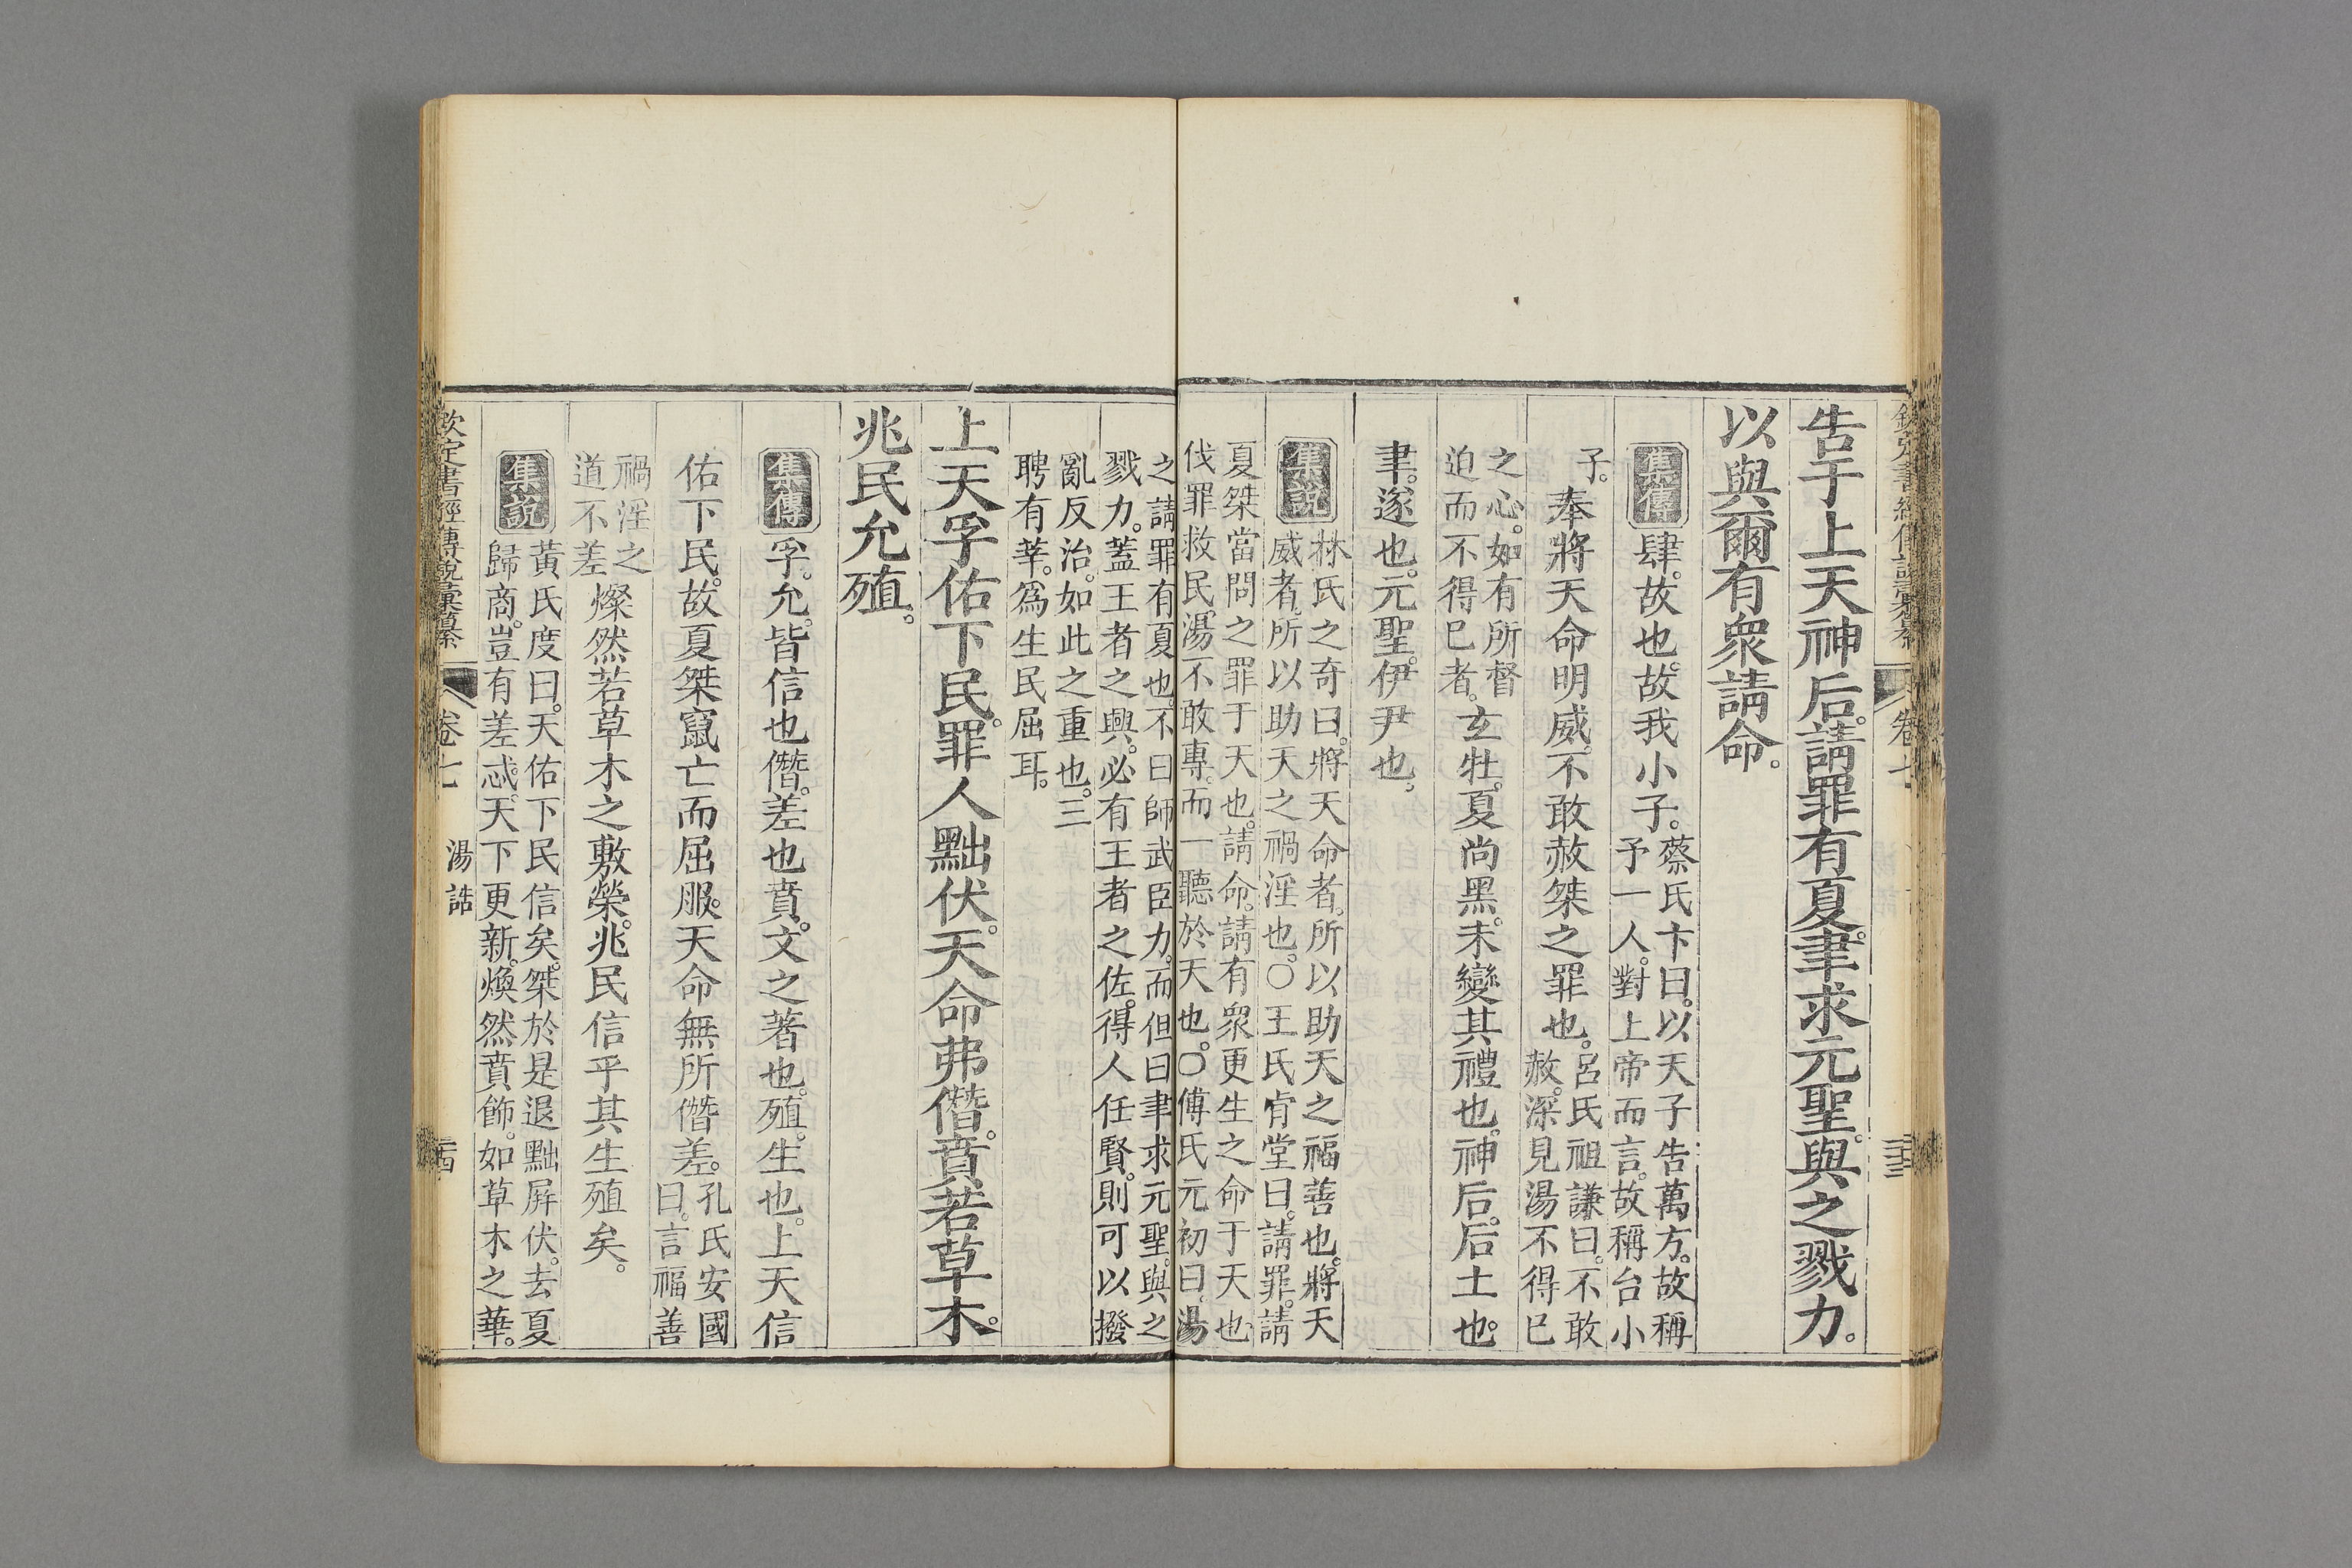 欽定書經傳說彙纂
卷七
告于上天神后。請罪有夏。聿求元聖。與之戮力。
以與爾有眾請命。
集傳
肆。故也。故我小子。
蔡氏卞曰。以天子告萬方。故稱
予一人。對上帝而言。故稱台小
子。
奉將天命明威。不敢赦桀之罪也。
呂氏祖謙曰。不敢
赦。深見湯不得已
之心。如有所督
迫而不得已者。
玄牡。夏尚黑。未變其禮也。神后。后土也。
聿。遂也。元聖。伊尹也。
集說
林氏之奇曰。將天命者。所以助天之福善也。將天
威者。所以助天之禍淫也。○王氏肯堂曰。請罪。請
夏桀當問之罪于天也。請命。請有眾更生之命于天也
伐罪救民。湯不敢專。而一聽於天也。○傅氏元初曰。湯
之請罪有夏也。不曰師武臣力。而但曰聿求元聖。與之
戮力。蓋王者之興。必有王者之佐。得人任賢。則可以撥
亂反治。如此之重也。三
聘有莘。為生民屈耳。
上天孚佑下民。罪人黜伏。天命弗僭。賁若草木。
兆民允殖。
集傳
孚。允。皆信也。僭。差也。賁。文之著也。殖。生也。上天信
佑下民。故夏桀竄亡而屈服。天命無所僭差。
孔氏安國
曰。言福善
禍淫之
道不差
燦然若草木之敷榮。兆民信乎其生殖矣。
集說
黃氏度曰。天佑下民信矣。桀於是退黜屏伏。去夏
歸商。豈有差忒。天下更新。煥然賁飾。如草木之華。
欽定書經傳說彙纂
卷七
湯誥